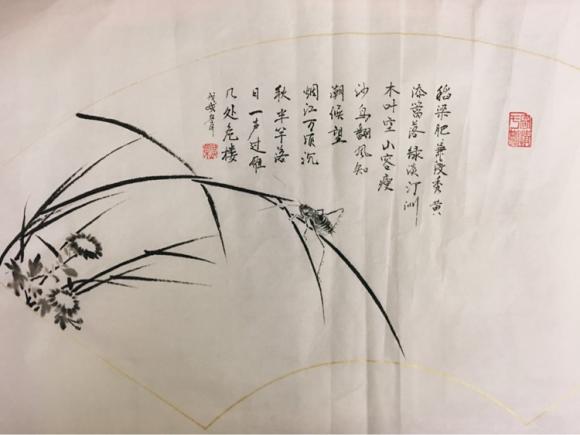 稻粱肥蒹葭秀黄
添篱落绿淡汀洲
木叶空山容瘦
沙鸟翻风知
潮候望
烟江万顷沉
秋半竿落
日一声过雁
几处危楼
戊戌